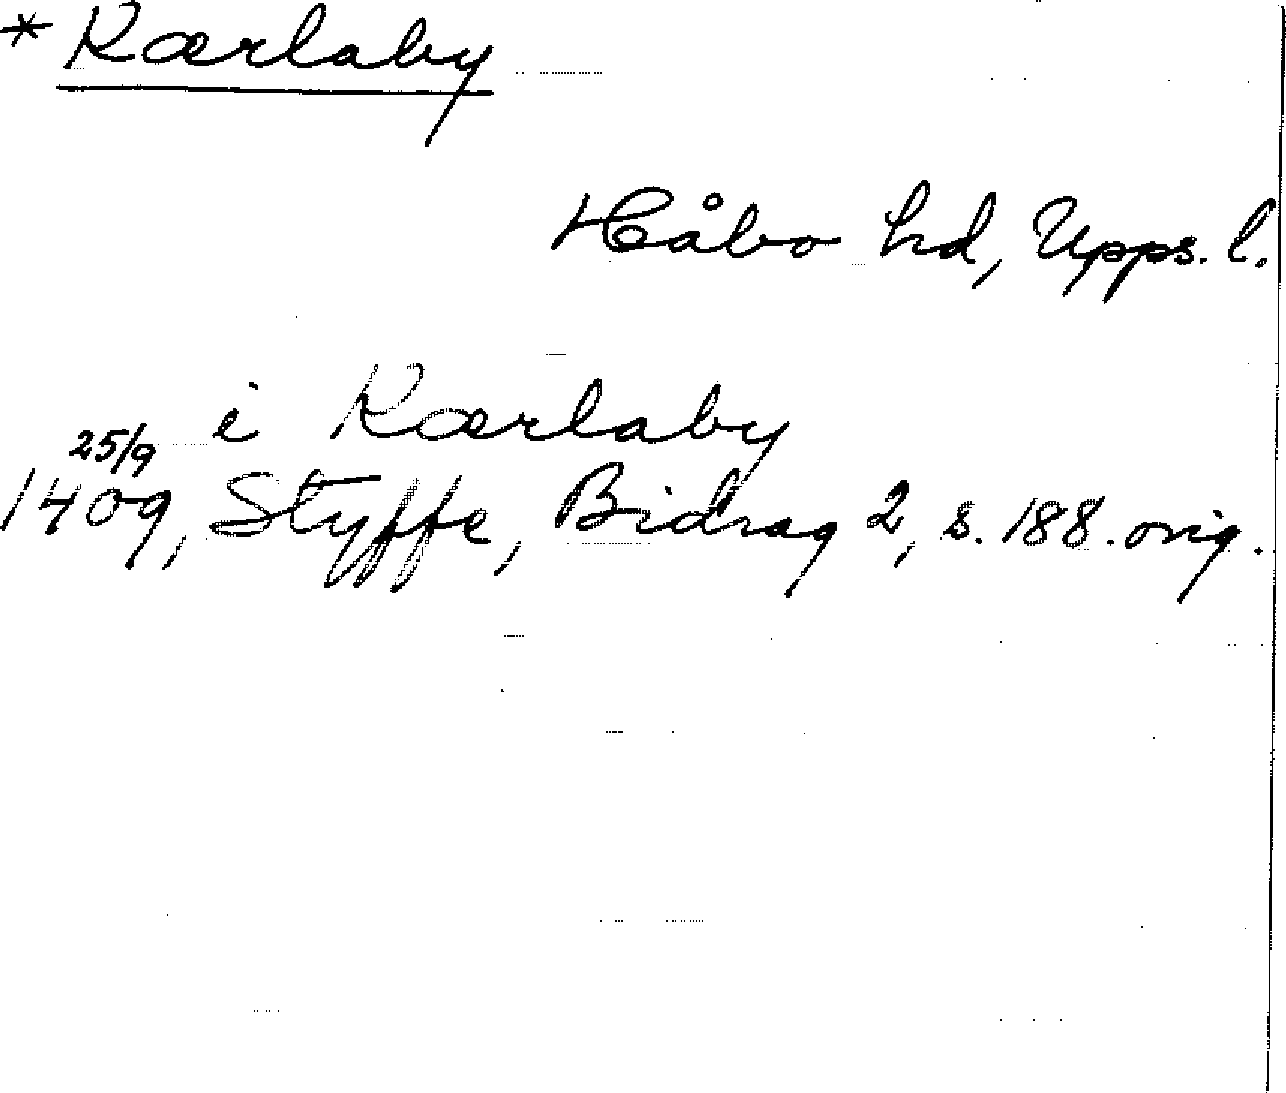 * Kærlaby
Håbo hd, Upps. l.
i Kærlaby
25/9
1409, Styffe, Bidrag 2, s. 188. orig.